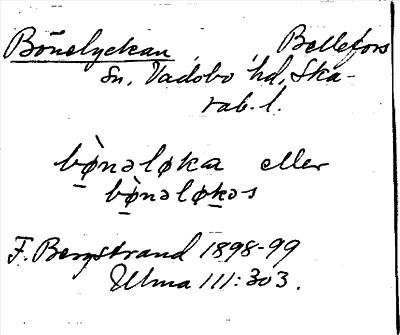 Bönelyckan, Bellefors
Sn, Vadsbo hd, Ska-
rab. l.
bø̀nəløka eller
bø̀nəløkəs
F. Bergstrand 1898-99
Ulma 111:303.